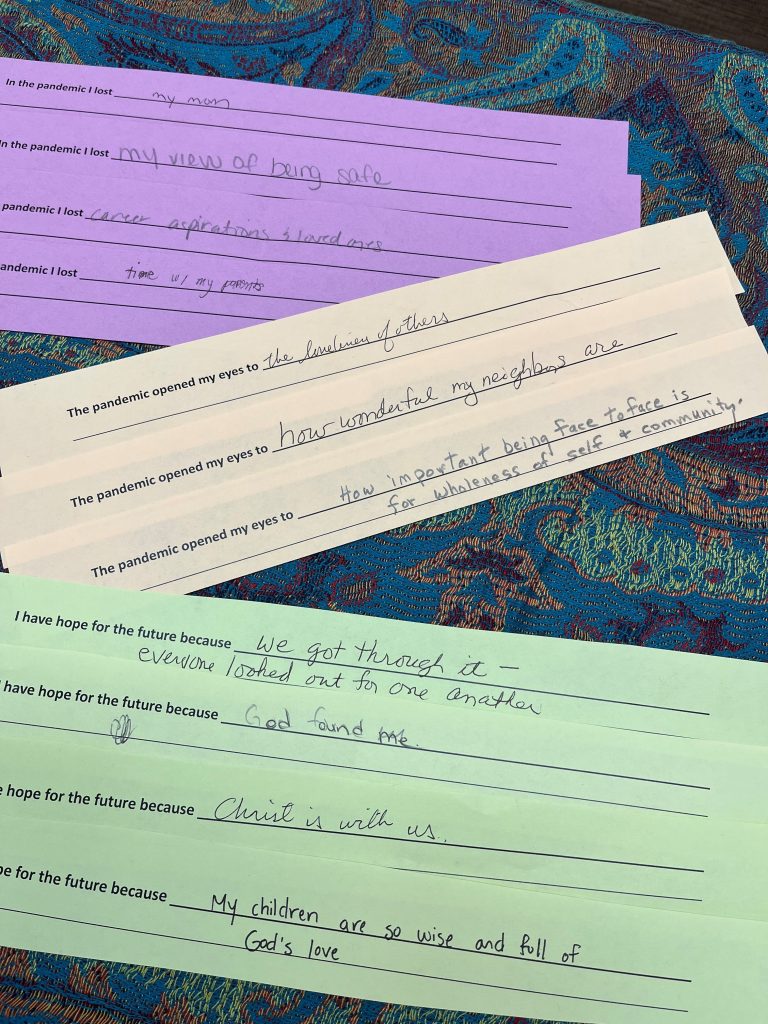 In the pandemic I lost my mom
n the pandemic I lost my view of being safe
pandemic I lost career aspirations & loved ones
andemic I lost time w/ my parents
The pandemic opened my eyes to the loneliness of others
The pandemic opened my eyes to how wonderful my neighbors are
The pandemic opened my eyes to How important being face to face is
for wholeness of self & community.
I have hope for the future because we got through it –
everyone looked out for one another
have hope for the future because God found me.
e hope for the future because Christ is with us.
pe for the future because My children are so wise and full of
God's love